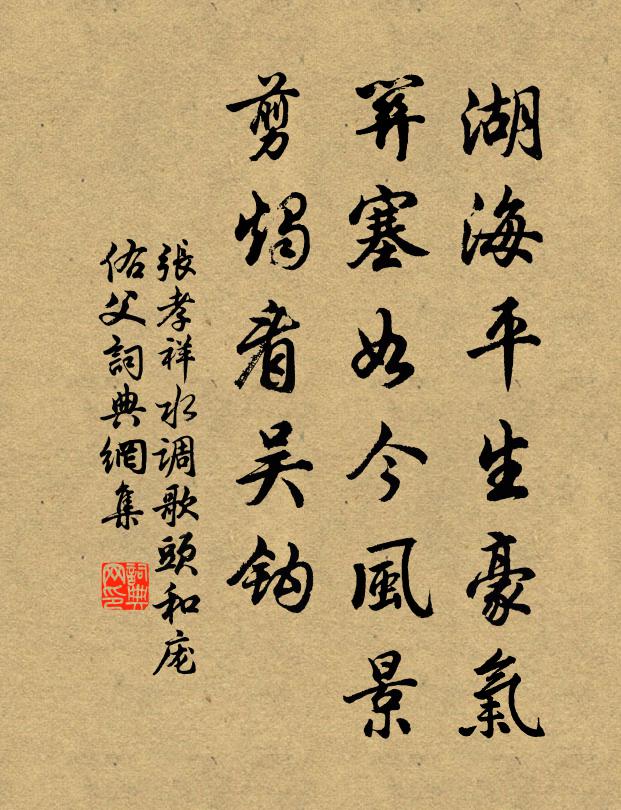 湖海平生豪氣
關塞如今風景
剪燭看吴鈎
張孝祥水调歌頭和庞
佑父詞典網集
詞典网印